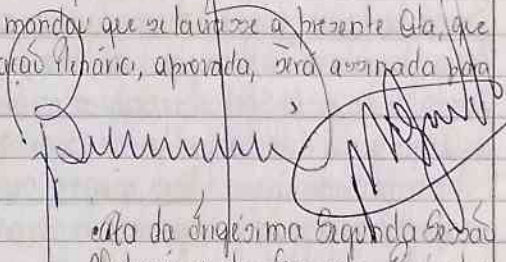 mandou que se lavrasse a presente Ata, que
ação Plenária, aprovada, será assinada para
Ata da Trigésima Segunda Sessão